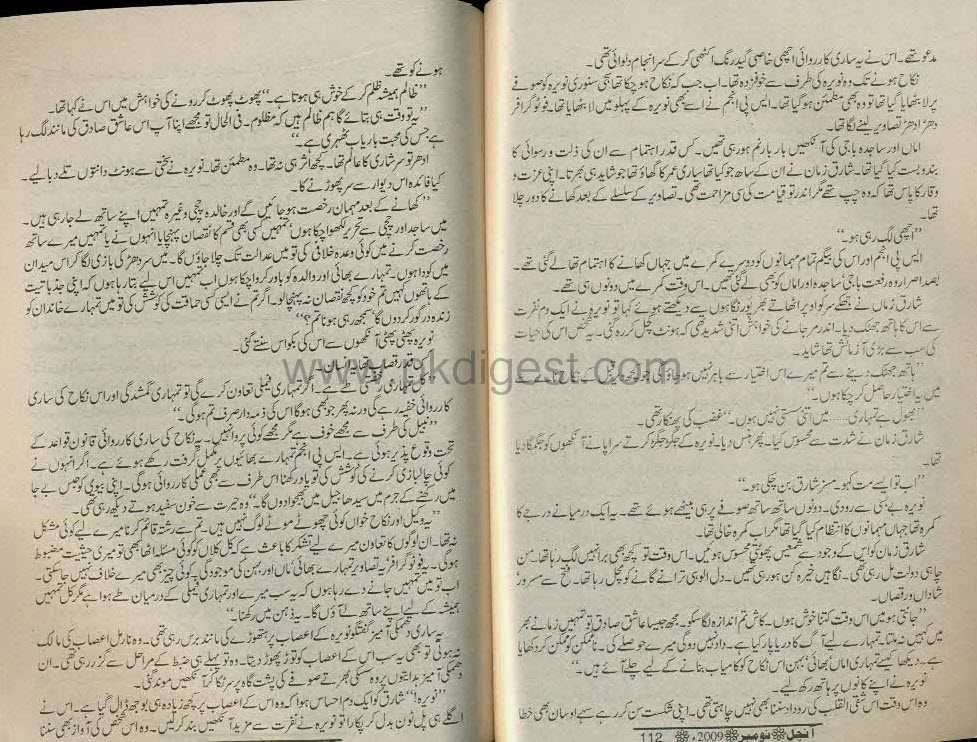 مدعو تھے۔ اس نے یہ ساری کارروائی اچھی خاصی گیدرنگ اکٹھی کر کے سرانجام دلوائی تھی۔
نکاح ہونے تک وہ نویرہ کی طرف سے خوفزدہ تھا۔ اب جب کہ نکاح ہو چکا تھا سجی سنوری نویرہ کو صوفے
پر لا بٹھایا گیا تھا تو وہ بھی مطمئن ہو گیا تھا۔ ایس پی انجم نے اسے بھی نویرہ کے پہلو میں لا بٹھایا تھا۔ فوٹوگرافر
دھڑا دھڑ تصاویر لینے لگا تھا۔
اماں اور ساجدہ باجی کی آنکھیں بار بار نم ہو رہی تھیں۔ کس قدر اہتمام سے ان کی ذلت و رسوائی کا
بندوبست کیا گیا تھا۔ شارق زمان نے ان کے ساتھ جو کیا تھا ساری عمر کا گھاؤ تھا جو شاید ہی بھرتا۔ اپنی عزت و
وقار کا پاس تھا کہ وہ چپ تھے مگر اندر تو قیامت کی سی مزاحمت تھی۔ تصاویر کے سلسلے کے بعد کھانے کا دور چلا
تھا۔
"اچھی لگ رہی ہو۔"
ایس پی انجم اور اس کی بیگم تمام مہمانوں کو دوسرے کمرے میں جہاں کھانے کا اہتمام تھا لے گئی تھے۔
بصد اصرار وہ رفعت باجی ساجدہ اور اماں کو بھی لے گئی تھیں۔ اس وقت کمرے میں دونوں ہی تھے۔
شارق زمان نے جھکے سر کو اوپر اٹھاتے بھرپور نگاہوں سے دیکھتے ہوئے کہا تو نویرہ نے ایک دم نفرت
سے اس کا ہاتھ جھٹک دیا۔ اندر مر جانے کی خواہش اتنی شدید تھی کہ ہونٹ کچل کر رہ گئی۔ یہ شخص اس کی حیات
کی سب سے بڑی آزمائش تھا شاید۔
"ہاتھ جھٹک دینے سے تم میرے اس اختیار سے باہر نہیں ہو جاؤ گی جو
میں یہ اختیار حاصل کر چکا ہوں۔"
"بھول ہے تمہاری...... میں اتنی سستی نہیں ہوں۔" غضب کی پھنکار تھی۔
شارق زمان نے شدت سے محسوس کیا۔ پھر ہنس دیا۔ نویرہ کے جگر جگر کرتے سراپا نے آنکھوں کو جگمگا دیا
تھا۔
"اب تو ایسے مت کہو۔ مسز شارق بن چکی ہو۔"
نویرہ بے بسی سے رو دی۔ دونوں ساتھ ساتھ صوفے پر ہی بیٹھے ہوئے تھے۔ یہ ایک درمیانے درجے کا
کمرہ تھا جہاں مہمانوں کا انتظام کیا گیا تھا مگر اب کمرہ خالی تھا۔
شارق زمان کو اس کے وجود سے شمعیں پھوٹتی محسوس ہوئیں۔ اس وقت تو کچھ بھی برا نہیں لگ رہا تھا۔ من
چاہی دولت مل رہی تھی۔ نگاہیں خیرہ کن ہو رہی تھیں۔ دل الوہی ترانے گانے کو مچل رہا تھا۔ فتح سے مسرور
شاداں و رقصاں۔
"جانتی ہو میں اس وقت کتنا خوش ہوں۔ کاش تم اندازہ لگا سکو۔ مجھ جیسا عاشق صادق تو تمہیں زمانے بھر
میں کہیں نہ ملتا۔ تمہارے لیے آگ کا دریا پار کیا ہے۔ داد نہیں دو گی میرے حوصلے کی۔ ناممکن کو ممکن کر دکھایا
ہے۔ دیکھا کیسے تمہاری اماں بھائی، بہن اس نکاح کو کامیاب بنانے کے لیے چلے آئے ہیں۔"
نویرہ نے اپنے کانوں پر ہاتھ رکھ لیے۔
وہ اس وقت اس شقی القلب کی روداد سننا بھی نہیں چاہتی تھی۔ اپنی شکست سن کر رہے سہے اوسان بھی خطا
آنچل نومبر 2009ء 112
ہونے کو تھے۔
"ظالم ہمیشہ ظلم کر کے خوش ہی ہوتا ہے۔" پھوٹ پھوٹ کر رونے کی خواہش میں اس نے کہا تھا۔
"یہ تو وقت ہی بتائے گا ہم ظالم ہیں کہ مظلوم۔ فی الحال تو مجھے اپنا آپ اس عاشق صادق کی مانند لگ رہا
ہے جس کی محبت باریاب ٹھہری ہے۔"
ادھر تو سرشاری کا عالم تھا۔ کچھ اثر ہی نہ تھا۔ وہ مطمئن تھا۔ نویرہ نے سختی سے ہونٹ دانتوں تلے دبا لیے۔
کیا فائدہ اس دیوار سے سر پھوڑنے کا۔
"کھانے کے بعد مہمان رخصت ہو جائیں گے اور خالدہ چچی وغیرہ تمہیں اپنے ساتھ لے جا رہی ہیں۔
میں ساجد اور چچی سے تحریر لکھوا چکا ہوں، تمہیں کسی بھی قسم کا نقصان پہنچایا انہوں نے یا تمہیں میرے ساتھ
رخصت کرنے میں کوئی وعدہ خلافی کی تو میں عدالت تک چلا جاؤں گا۔ میں سر دھڑ کی بازی لگا کر اس میدان
میں کودا ہوں۔ تمہارے بھائی اور والدہ کو باور کروا چکا ہوں اب تمہیں اس لیے بتا رہا ہوں کہ اپنی جذباتیت
کے ہاتھوں کہیں تم خود کو کچھ نقصان نہ پہنچا لو۔ اگر تم نے ایسی کسی حماقت کی کوشش کی تو میں تمہارے خاندان کو
زندہ درگور کر دوں گا، سمجھ رہی ہو ناں تم؟"
نویرہ پھٹی پھٹی آنکھوں سے اس کی بکواس سنتے گئی۔
کس قدر قصائی تھا یہ انسان۔
تمہاری رخصتی طے ہے۔ اگر تمہاری فیملی تعاون کرے گی تو تمہاری گمشدگی اور اس نکاح کی ساری
کارروائی خفیہ رہے گی ورنہ پھر جو بھی ہوگا اس کی ذمہ دار صرف تم ہوگی۔"
"نبیل کی طرف سے مجھے خوف ہے مگر مجھے کوئی پروا نہیں۔ یہ نکاح کی ساری کارروائی قانون قواعد کے
تحت وقوع پذیر ہوئی ہے۔ ایس پی انجم تمہارے بھائیوں پر مکمل گرفت رکھے ہوئے ہے۔ اگر انہوں نے
کوئی چالبازی کرنے کی کوشش کی تو یاد رکھنا اس طرف سے بھی عملی کارروائی ہوگی۔ اپنی بیوی کو حبس بے جا
میں رکھنے کے جرم میں سیدھا جیل میں بھجوا دوں گا۔" وہ حیرت سے خون سفید ہوتے دیکھ رہی تھی۔
"یہ وکیل اور نکاح خواں کوئی چھوٹے موٹے لوگ نہیں ہیں۔ تم سے رشتہ قائم کرنا میرے لیے کوئی مشکل
نہ تھا۔ ان لوگوں کا تعاون میرے لیے تشکر کا باعث ہے کہ کل کلاں کو کوئی مسئلہ اٹھا بھی تو میری حیثیت مضبوط
ہوگی۔ یہ فوٹوگرافر یہ تصاویر تمہارے بھائی، ماں اور بہن کی موجودگی۔ کوئی چیز بھی میرے خلاف نہیں جا سکتی۔
اب تو میں تمہیں جانے دے رہا ہوں کہ یہ سب میرے اور تمہاری فیملی کے درمیان طے ہوا ہے مگر کل تمہیں
ہمیشہ کے لیے اپنے ساتھ لے آؤں گا۔ یہ ذہن میں رکھنا۔"
یہ ساری دھمکی آمیز گفتگو نویرہ کے اعصاب پر ہتھوڑے کی مانند برس رہی تھی۔ وہ نارمل اعصاب کی مالک
نہ ہوتی تو بھی یہ سب اس کے اعصاب کو توڑ پھوڑ دیتا۔ وہ تو پہلے ہی ضبط کے مراحل سے گزر رہی تھی۔ ان
دھمکی آمیز ہدایتوں پر وہ سسکی بھرتے صوفے کی پشت گاہ پر سر ٹکا کر آنکھیں موند گئی۔
"نویرہ!" شارق کو ایک دم احساس ہوا کہ وہ اس کے اعصاب پر کچھ زیادہ ہی بوجھ ڈال گیا ہے۔ اس نے
اگلے ہی پل ٹون بدل کر پکارا تو نویرہ نے نفرت سے مزید آنکھیں بند کر لیں۔ وہ اس شخص کی آواز بھی سننا
www.pkdigest.com